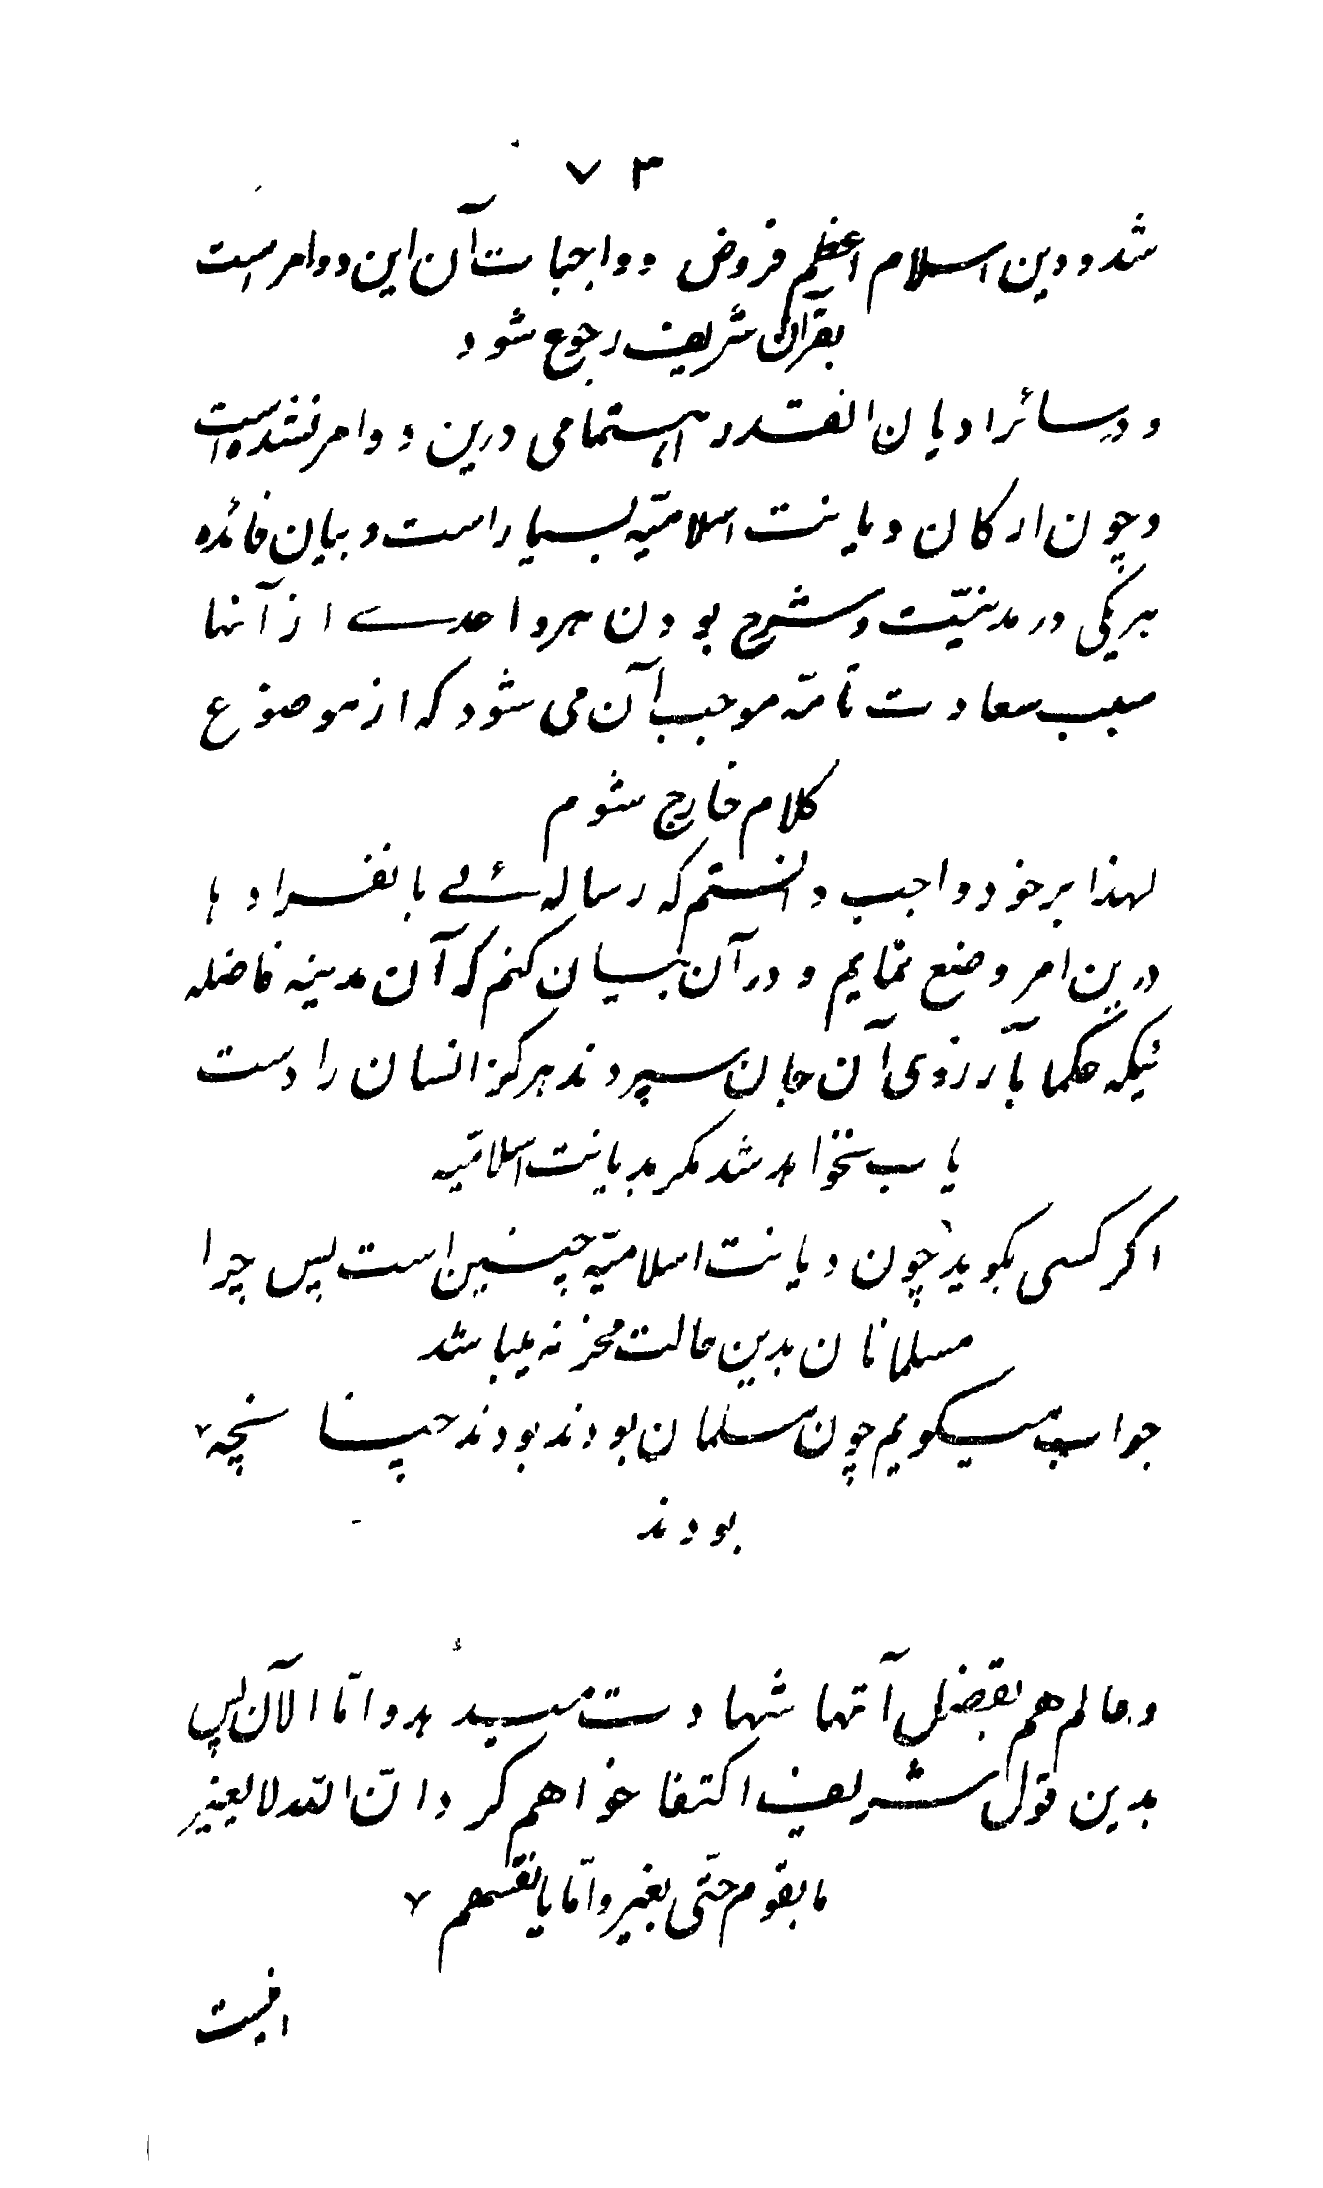 ۷۳
شد و دین اسلام اعظم فروض و واجبات آن این دو امر است
بقرآن شریف رجوع شود
و در سائر ادیان انقدر اهتمامی درین دو امر نشده است
و چون ارکان دیانت اسلامیّه بسیار است و بیان فائده
هریکی در مدنیّت و شرح بودن هر واحدے از آنها
سبب سعادت تامّه موجب آن می شود که از موضوع
کلام خارج شوم
لهذا بر خود واجب دانستم که رساله ئے بانفرادها
درین امر وضع نمایم و در آن بیان کنم که آن مدینه فاضله
ئیکه حکما بآرزوی آن جان سپردند هرکز انسان را دست
یاب نخواهد شد مکر بدیانت اسلامیّه
اکر کسی بکوید چون دیانت اسلامیّه چنین است پس چرا
مسلمانان بدین حالت محزنه میباشد
جواب میکویم چون مسلمان بودند بودند چنانچه
بودند
و عالم هم بفضل آنها شهادت میدهد و امّا الآن پس
بدین قول شریف اکتفا خواهم کرد انّ الله لا یغیر
ما بقوم حتّی یغیروا ما بانفسهم ۷
اینست